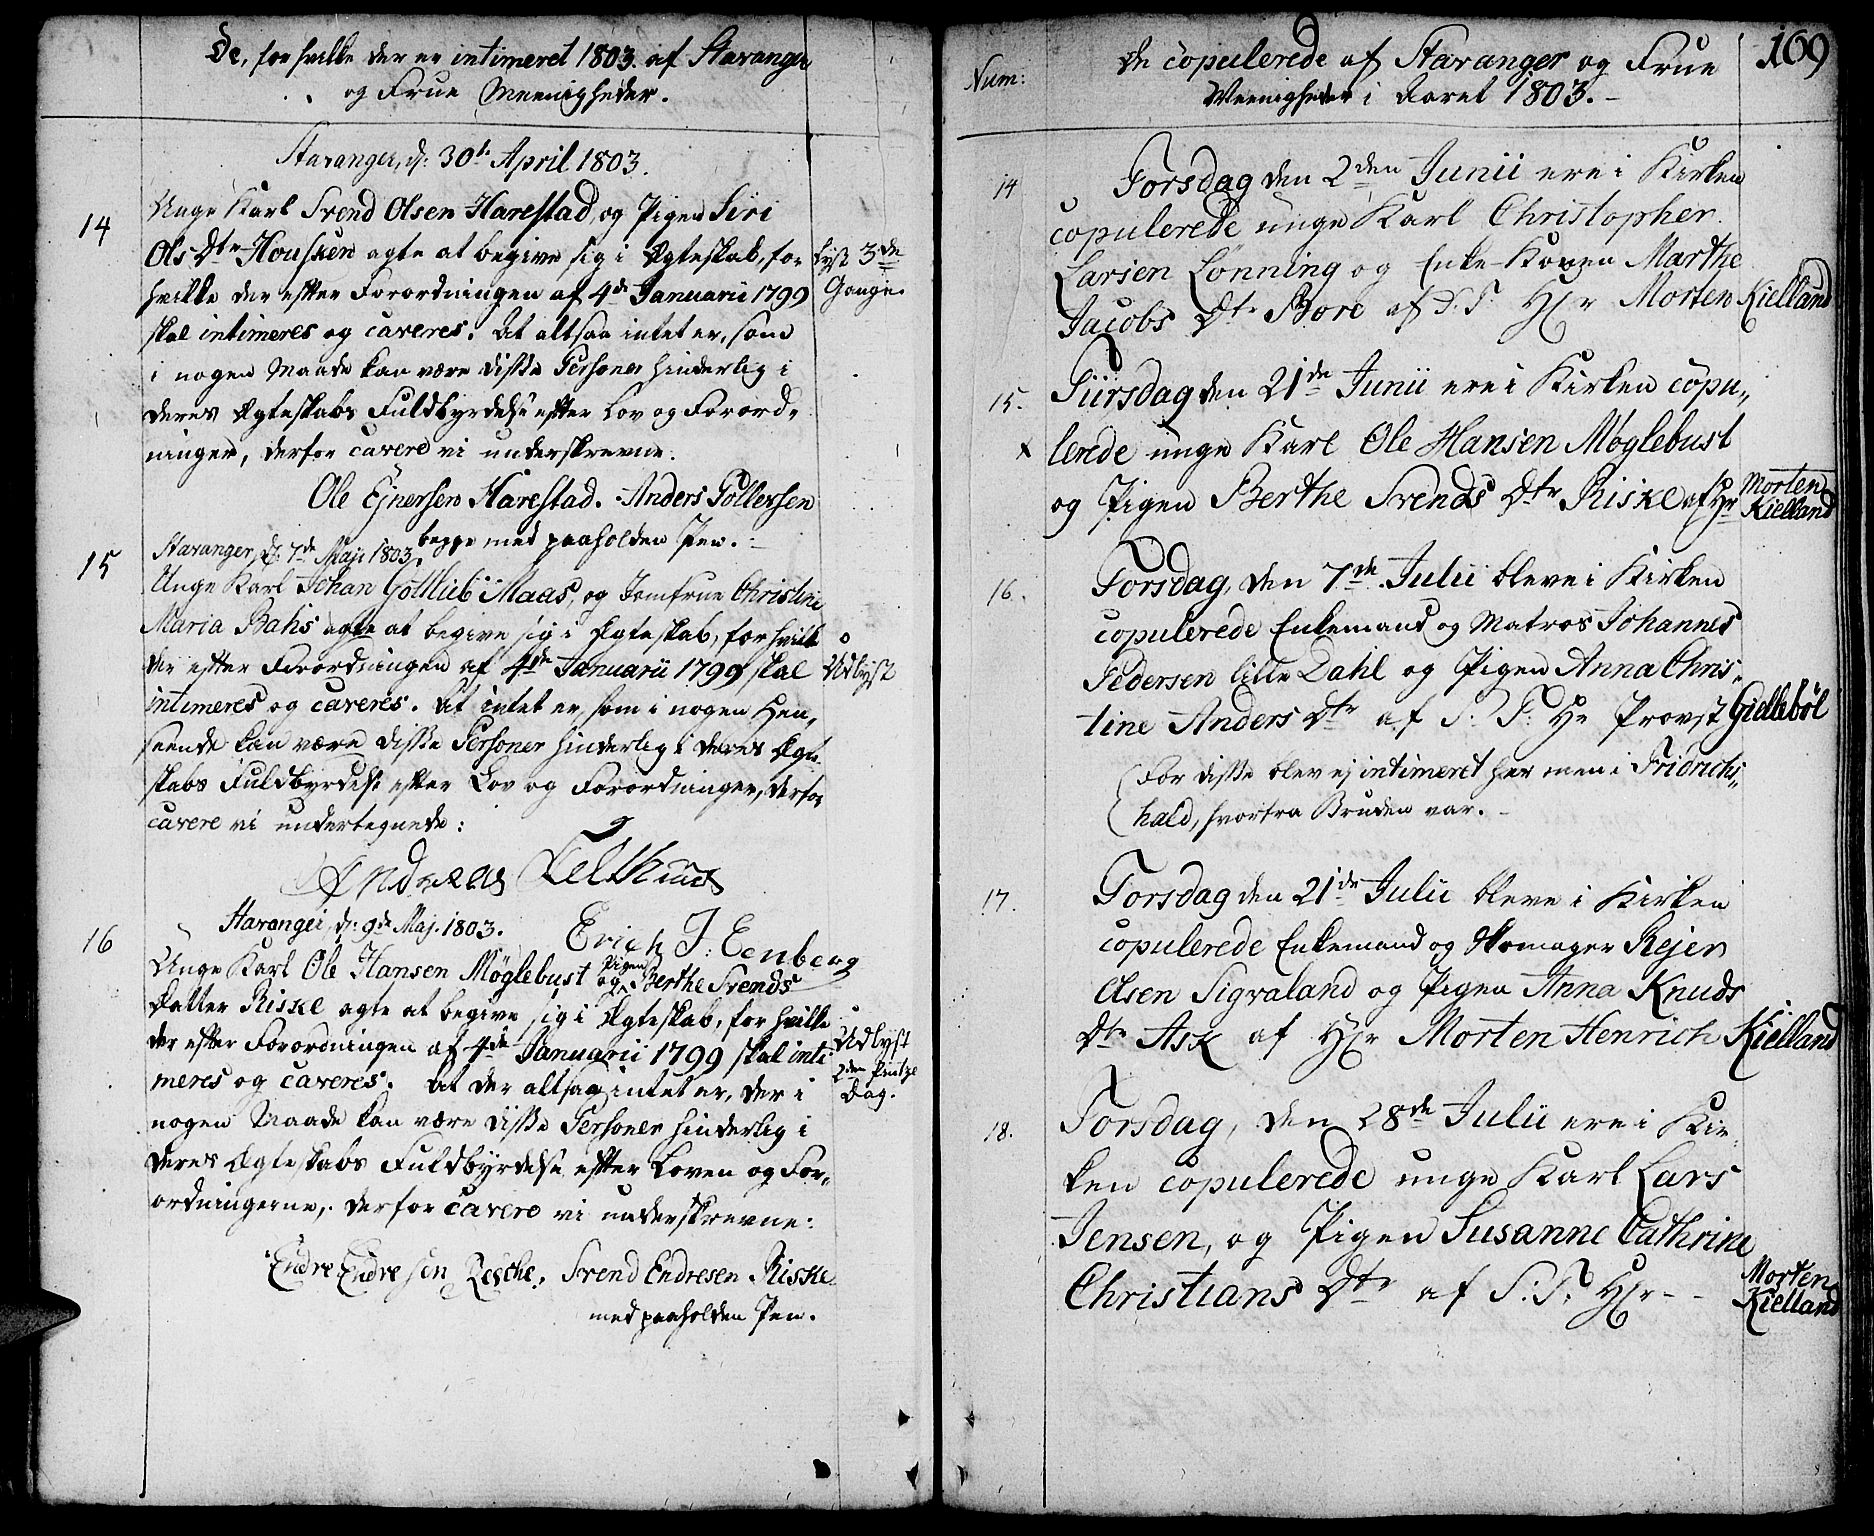 De, for hvilke der er intimeret 1803. af Stavanger
og Frue Meenigheder.
Stavanger, d: 30t April 1803.
14
Unge Karl Svend Olsen Harestad, og Pigen Siri
Ols Dtr Housken agte at begive sig i Ægteskab, for
lyst 3de
hvilke der efter Forordningen af 4de Januarii 1799
Gange.
skal intimeres og caveres. At altsaa intet er, som
i nogen Maade kan være disse Personer hinderlig i
deres Ægteskabs Fuldbyrdelse efter Lov og Forord-
ninger, derfor cavere vi underskrevne.
Ole Ejnersen Harestad. Anders Tollevsen
begge med paaholden Pen.
15
Stavanger, d: 7de Maji 1803.
Unge Karl Johan Gottlieb Maas, og Jomfrue Christine
Maria Bahs agte at begive sig i Ægteskab, for hvilke
der efter Forordningen af 4de Januarii 1799 skal
Udlyst
intimeres og caveres. At intet er, som i nogen Hen-
seende kan være disse Personer hinderlig i deres Ægte-
skabs Fuldbyrdelse efter Lov og Forordninger, derfor
cavere vi undertegnede:
Andreas
Erich J: Eenberg
16
Stavanger, d: 9de Maj. 1803.
Unge Karl Ole Hansen Møglebust og Pigen Berthe Svends
Datter Riske agte at begive sig i Ægteskab, for hvilke
der efter Forordningen af 4de Januarii 1799 skal inti
Udlyst
meres og caveres. At der altsaa intet er, der i
2den Pintze
Dag.
nogen Maade kan være disse Personer hinderlig i
deres Ægteskabs Fuldbyrdelse efter Loven og For-
ordningerne, derfor cavere vi underskrevne:
Endre Endresen Resche, Svend Endresen Riske
med paaholden Pen.
109
Num:
De copulerede af Stavanger og Frue
Meenigheder i Aaret 1803.
14
Torsdag den 2den Junii ere i Kirken
copulerede unge Karl Christopher
Larsen Lønning og Enke-Konen Marthe
Jacobs Dtr Bore af S: T: Hr Morten Kielland
15.
Tiirsdag den 21de Junii ere i Kirken copu-
x
lerede unge Karl Ole Hansen Møglebust
og Pigen Berthe Svends Dtr Riske af Hr Morten
Kielland
16.
Torsdag, den 7de Julii bleve i Kirken
copulerede Enkemand og Matros Johannes
Pedersen lille Dahl og Pigen Anna Chris-
tine Anders Dtr af S: T: Hr Provst Giellebøl
(For disse blev ej intimeret her men i Fridrichs-
hald, hvorfra Bruden var.
17.
Torsdag den 21de Julii bleve i Kirken
copulerede Enkemand og Skomager Rejer
Olsen Sigvaland og Pigen Anna Knuds
Dtr Ask af Hr Morten Henrich Kielland
18.
Torsdag, den 28de Julii ere i Kir-
ken copulerede unge Karl Lars
Jensen, og Pigen Susanne Cathrine
Christians Dtr af S: T: Hr - - Morten
Kielland